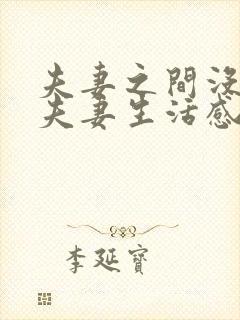 夫妻之間沒
夫妻生活感
李延寳